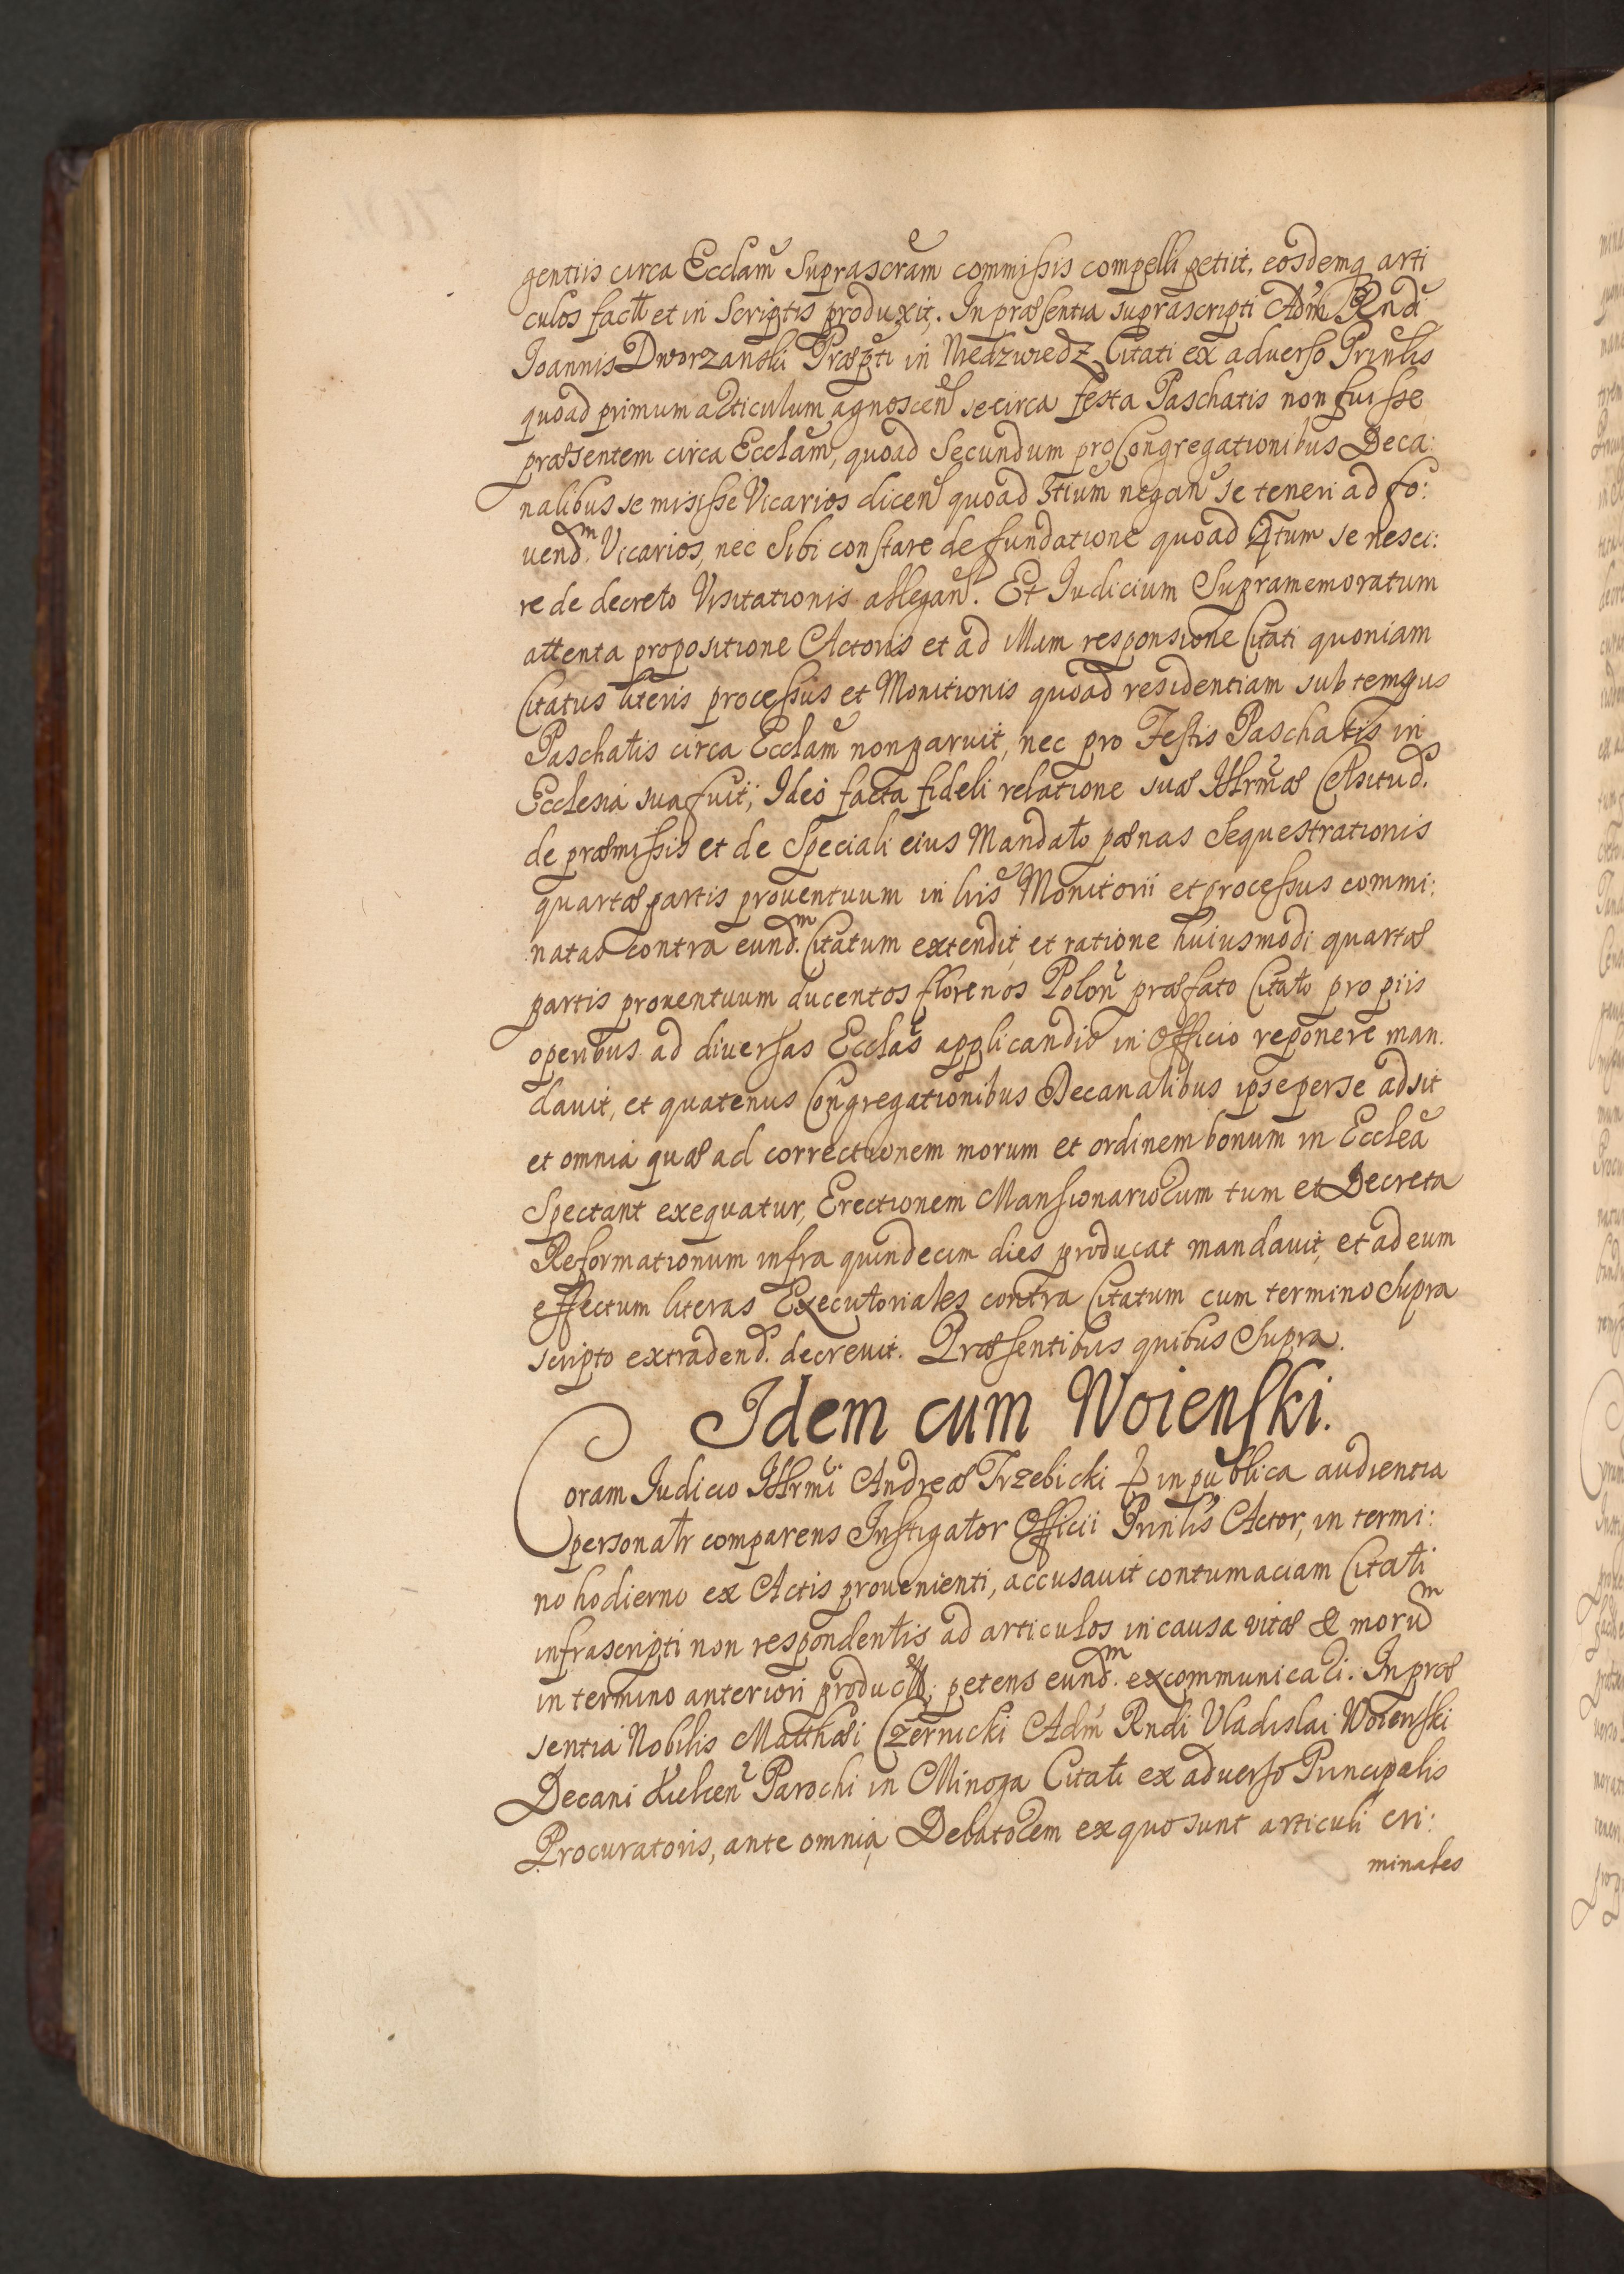 gentiis circa Ecclam suprascram commissis compelli petiit, eosdemq arti
culos factt et in scriptis produxit. In præsentia suprascripti Adm Rndi
Joannis Dworzanski Præpti in Niedzwiedz Citati ex adverso Prinlis
quoad primum articulum agnoscen se circa festa Paschatis non fuisse
præsentem circa Ecclam, quoad secundum pro Congregationibus Deca:
nalibus se misisse Vicarios dicen quoad 3tium negan se teneri ad fo:
uend.m Vicarios, nec sibi constare de fundatione quoad 4tum se nesci:
re de decreto Visitationis allegan. Et Judicium supramemoratum
attenta propositione Actoris et ad illam responsione Citati quoniam
Citatus literis processus et Monitionis quoad residentiam sub tempus
Paschatis circa Ecclam non paruit, nec pro Festis Paschatis in
Ecclesia sua fuit; Ideo facta fideli relatione suæ Illrmæ Celsitud.
de præmissis et de speciali eius Mandato pænas sequestrationis
quartæ partis prouentuum in lris Monitorii et processus commi:
natas contra eund.m Citatum extendit, et ratione huiusmodi quartæ
partis prouentuum ducentos florenos Polon præfato Citato pro piis
operibus ad diuersas Ecclas applicandis in Officio reponere man.
dauit, et quatenus Congregationibus Decanalibus ipse per se adsit
et omnia quæ ad correctionem morum et ordinem bonum in Ecclea
spectant exequatur, Erectionem Mansionariorum tum et Decreta
Reformationum infra quindecim dies producat mandauit, et ad eum
effectum literas Executoriales contra Citatum cum termino supra
scripto extradend. decreuit. Præsentibus quibus supra.
Idem cum Woienski.
Coram Judicio Illrmi Andreæ Trzebicki in publica audientia
personaltr comparens Instigator Officii Prinlis Actor, in termi:
no hodierno ex Actis prouenienti, accusauit contumaciam Citati
infrascripti non respondentis ad articulos in causa vitæ & morum
in termino anteriori produc; petens eund.m excommunicari. In præ
sentia Nobilis Matthæi Czernicki Adm Rndi Vladislai Woienski
Decani Kielcen Parochi in Minoga Citati ex aduerso Principalis
Procuratoris, ante omnia Delatorem ex quo sunt articuli cri:
minales